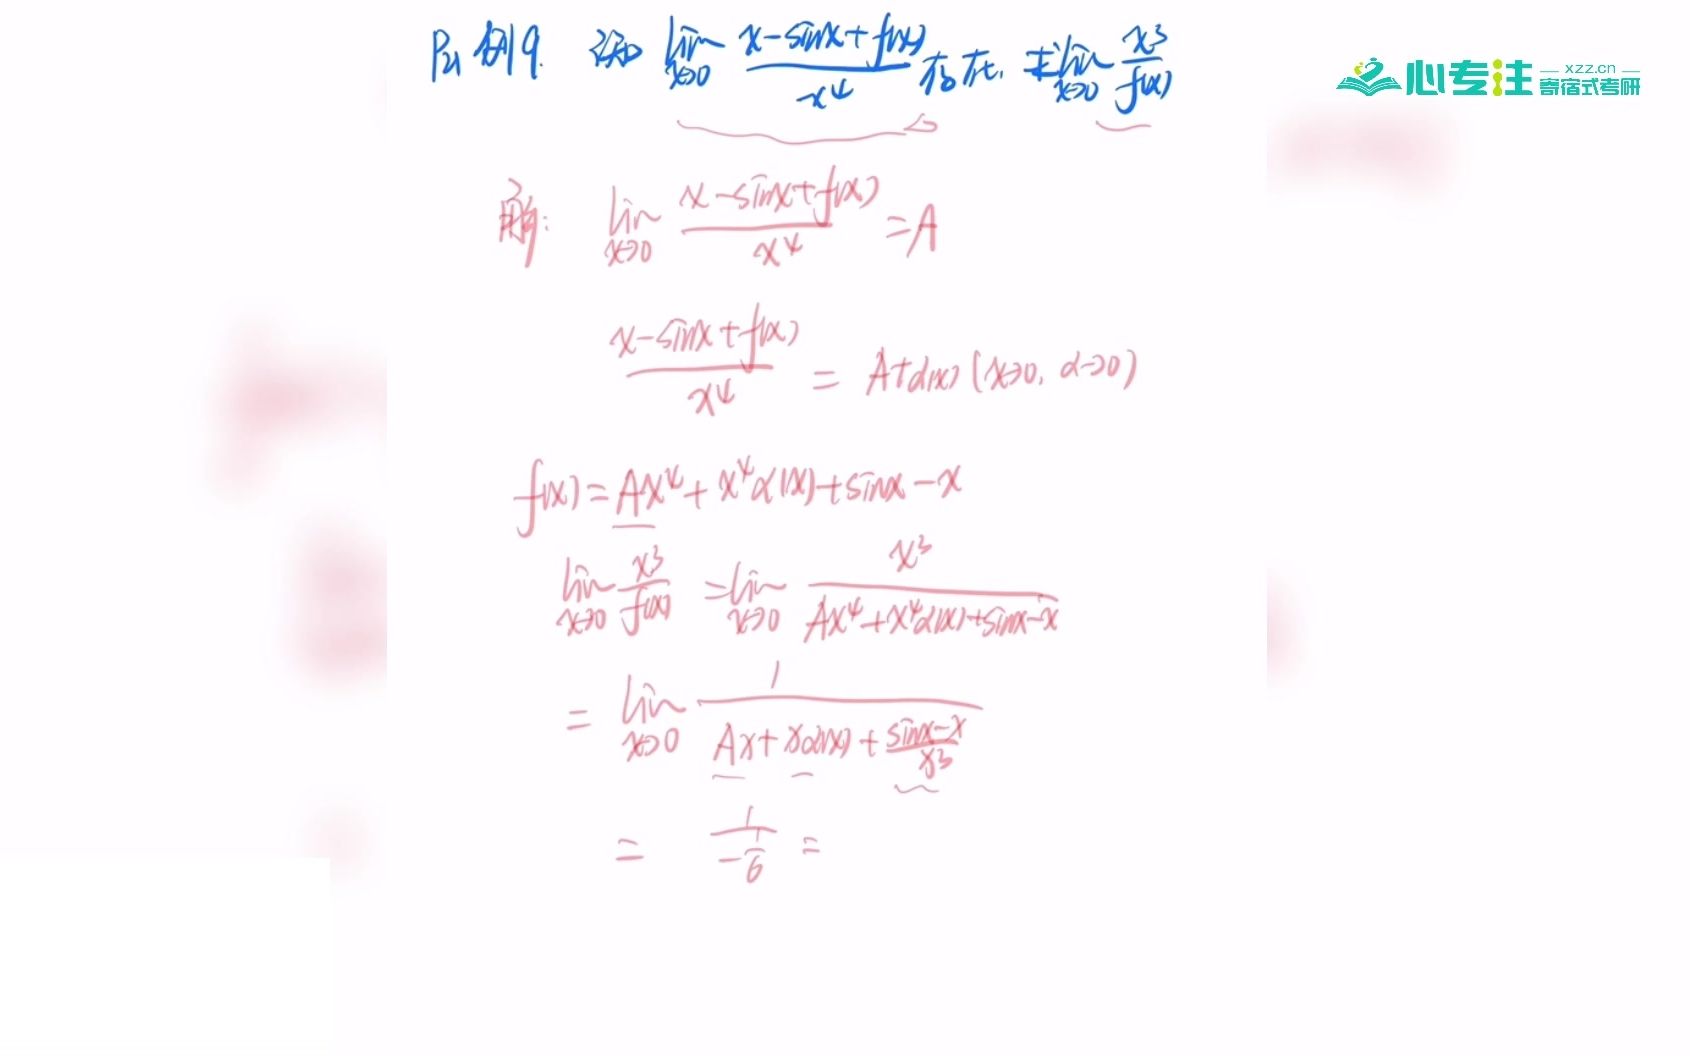 P21 例9. 设 lim x→0 (x-sinx+f(x))/x⁴ 存在, 求 lim x→0 x³/f(x)
心专注 xzz.cn 寄宿式考研
解: lim x→0 (x-sinx+f(x))/x⁴ = A
(x-sinx+f(x))/x⁴ = A+α(x) (x→0, α→0)
f(x)=Ax⁴+x⁴α(x)+sinx-x
lim x→0 x³/f(x) = lim x→0 x³/(Ax⁴+x⁴α(x)+sinx-x)
= lim x→0 1/(Ax+xα(x)+(sinx-x)/x³)
= 1/(-1/6) =